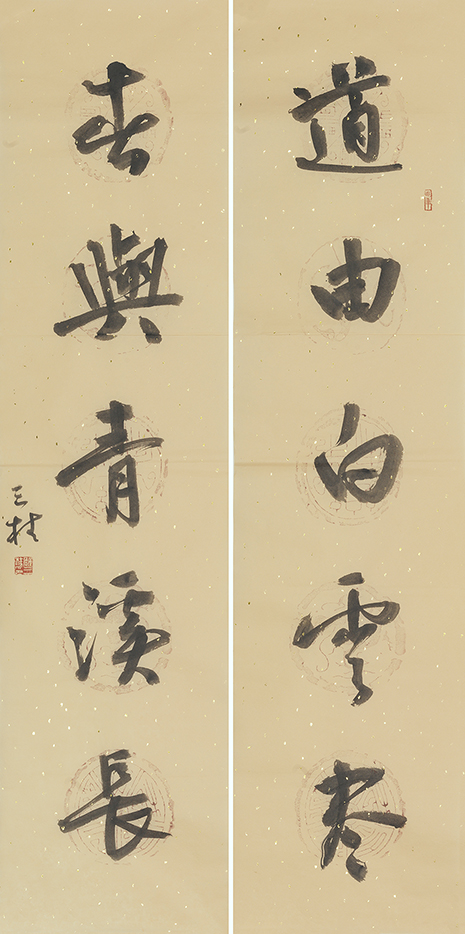 道由白雲尽
春與青溪長
三桂